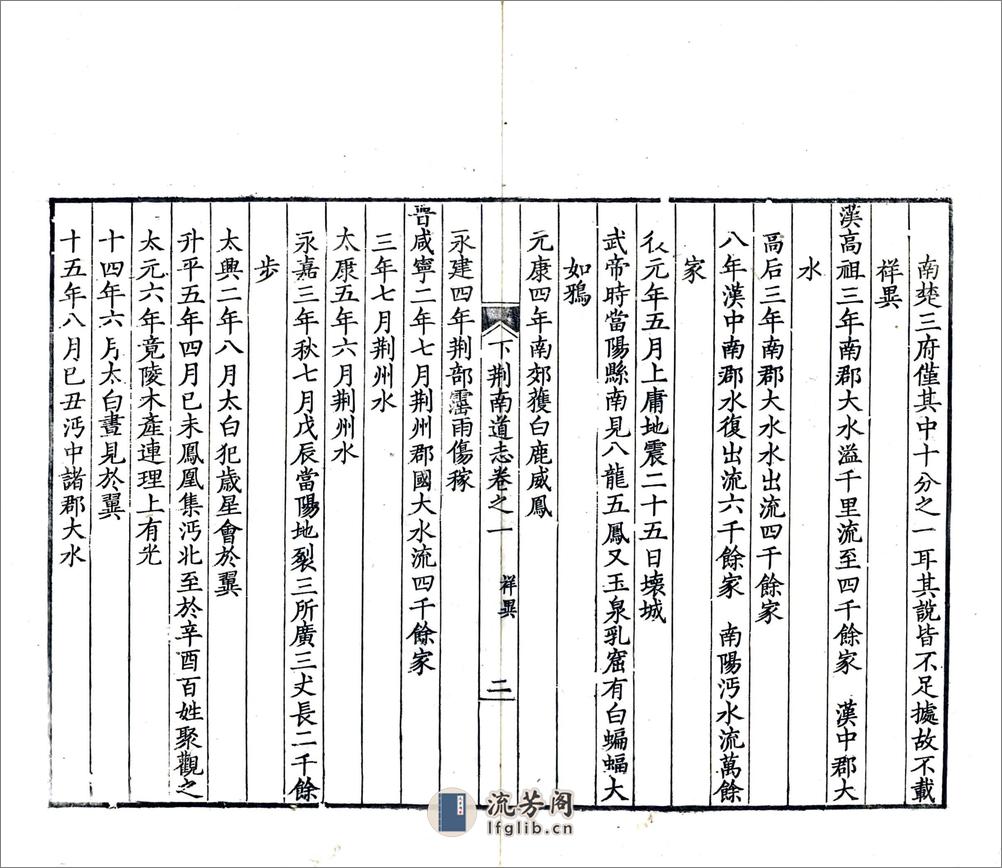 南楚三府僅其中十分之一耳其說皆不足據故不載
祥異
漢高祖三年南郡大水溢千里流至四千餘家　漢中郡大
水
高后三年南郡大水水出流四千餘家
八年漢中南郡水復出流六千餘家　南陽沔水流萬餘
家
元年五月上庸地震二十五日壞城
武帝時當陽縣南見八龍五鳳又玉泉乳窟有白蝙蝠大
如鴉
元康四年南郊獲白鹿威鳳
永建四年荆部霪雨傷稼
晉咸寧二年七月荆州郡國大水流四千餘家
三年七月荆州水
太康五年六月荆州水
永嘉三年秋七月戊辰當陽地裂三所廣三丈長二千餘
步
太興二年八月太白犯歲星會於翼
升平五年四月巳未鳳凰集沔北至於辛酉百姓聚觀之
太元六年竟陵木產連理上有光
十四年六月太白晝見於翼
十五年八月巳丑沔中諸郡大水
下荆南道志卷之一　祥異　二
流芳阁
lfglib.cn